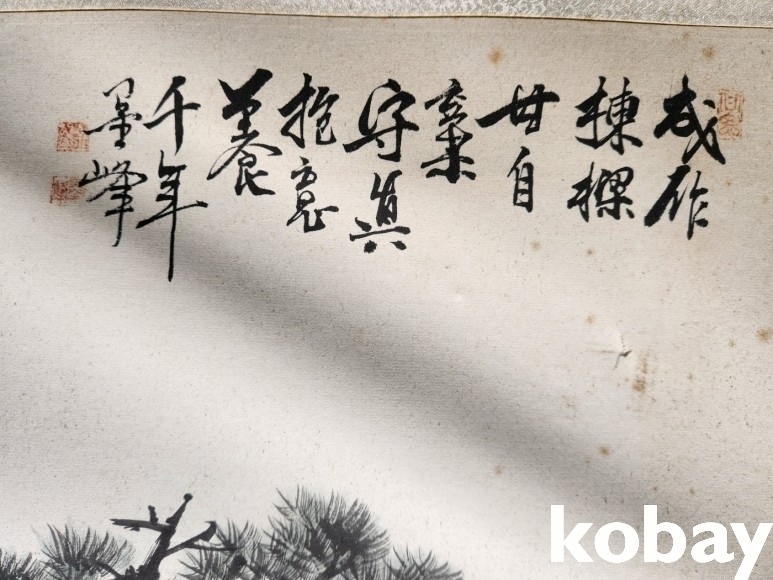 作
棟樑
甘自
棄
守真
抱
養
千年
墨峰
kobay